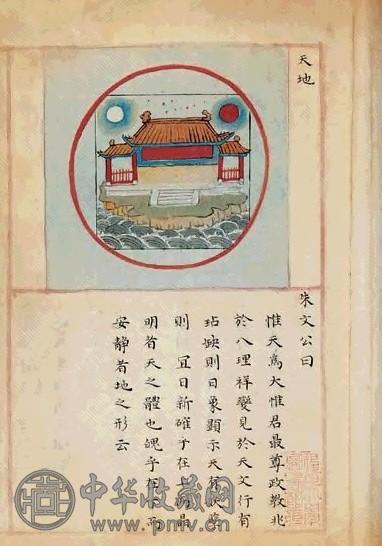 天地
朱文公曰
惟天爲大惟君最尊政教兆
於人理祥變見於天文行有
玷缺則日象顯示天
則冝日新確乎在上而晶
明者天之體也魄乎在下而
安靜者地之形云
中华收藏网
www.pmv.cn